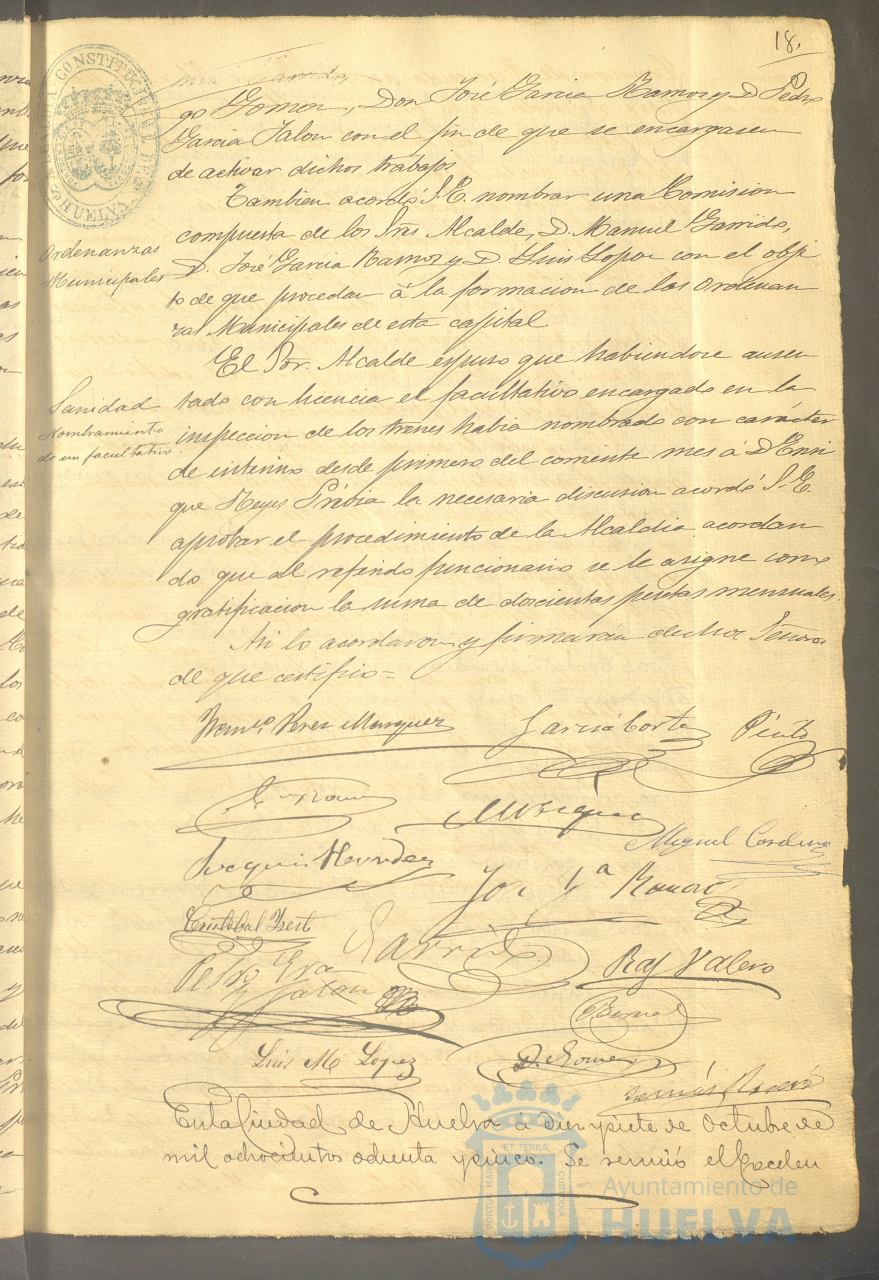 18.
go Gomez, Don José Garcia Ramos y D. Pedro
Garcia Jalon con el fin de que se encargasen
de activar dichos trabajos
Ordenanzas
Municipales
Tambien acordó S.E. nombrar una Comision
compuesta de los Sres Alcalde, D. Manuel Garrido,
D. José Garcia Ramos y D. Luis Lopez con el obje
to de que procedan á la formacion de las Ordenan
zas Municipales de esta capital
Sanidad
Nombramiento
de un facultativo
El Sor. Alcalde espuso que habiendose ausen
tado con licencia el facultativo encargado en la
inspeccion de los trenes habia nombrado con carácter
de interino desde primero del corriente mes á D. Enri
que Reyes Prévia la necesaria discusion acordó S.E.
aprobar el procedimiento de la Alcaldia acordan
do que al referido funcionario se le asigne como
gratificacion la suma de doscientas pesetas mensuales.
Asi lo acordaron y firmarán dichos Señores
de que certifico=
Perez Marquez
Garcia Cortes
Pinto
Miguel Cordero
Jose Ga Ramos
Cristobal
Garrido
Raf Valero
Pedro Gra
y Jalon
Bernal
Luis M Lopez
D. Gomez
En la Ciudad de Huelva á diez y siete de Octubre de
mil ochocientos ochenta y cinco. Se reunió el Excelen
PORTUS MARIS
ET TERRÆ
CUSTODIA
Ayuntamiento de
HUELVA
ALCALDIA CONSTITUCIONAL DE
HUELVA